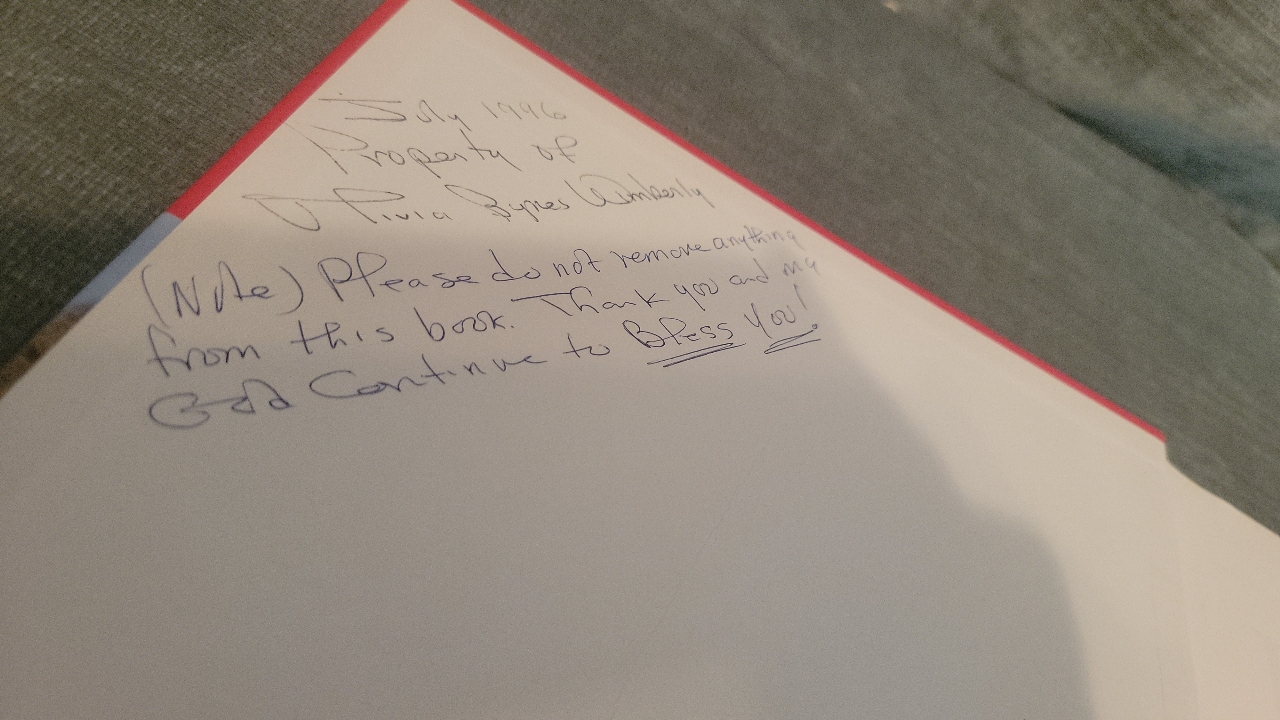 July 1996
Property of
Olivia Bynes Wimberly
(Note) Please do not remove anything
from this book. Thank you and my
God Continue to Bless You!